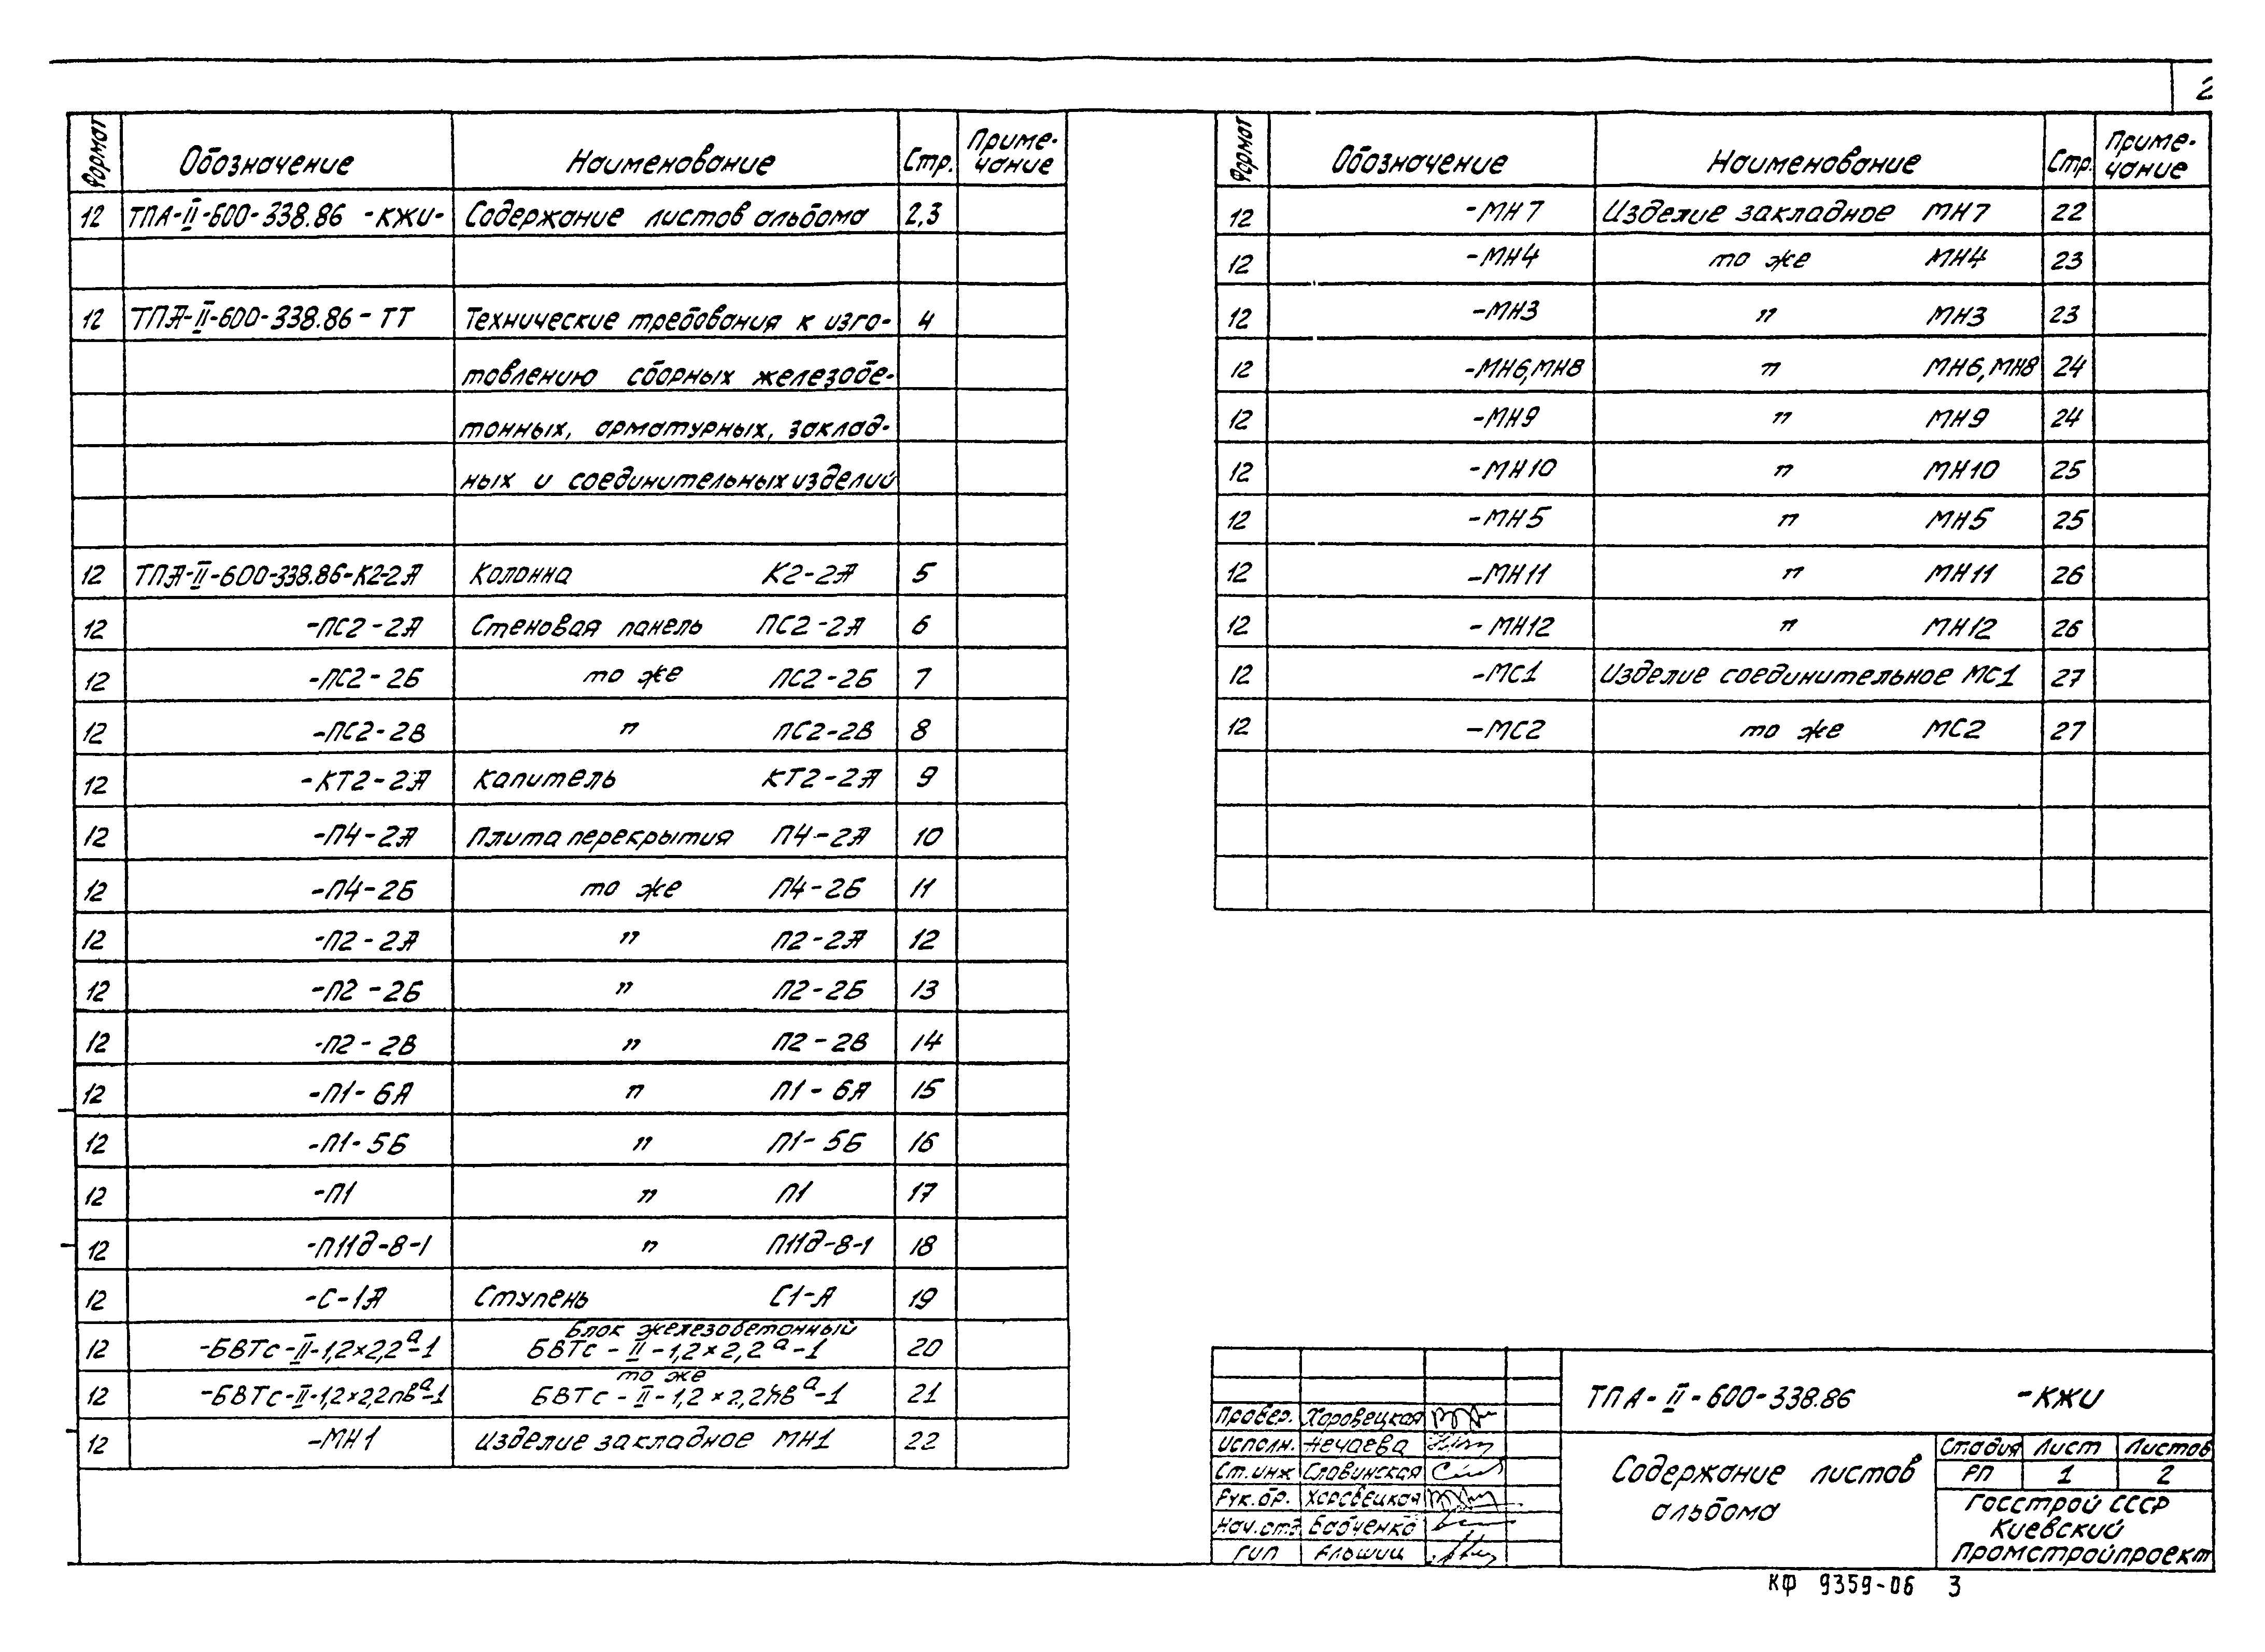 2
Формат Обозначение Наименование Стр. Приме-чание
12 ТПА-II-600-338.86 -КЖИ- Содержание листов альбома 2,3
12 ТПА-II-600-338.86-ТТ Технические требования к изго- 4
товлению сборных железобе-
тонных, арматурных, заклад-
ных и соединительных изделий
12 ТПА-II-600-338.86-К2-2А Колонна К2-2А 5
12 -ПС2-2А Стеновая панель ПС2-2А 6
12 -ПС2-2Б то же ПС2-2Б 7
12 -ПС2-2В " ПС2-2В 8
12 -КТ2-2А Капитель КТ2-2А 9
12 -П4-2А Плита перекрытия П4-2А 10
12 -П4-2Б то же П4-2Б 11
12 -П2-2А " П2-2А 12
12 -П2-2Б " П2-2Б 13
12 -П2-2В " П2-2В 14
12 -П1-6А " П1-6А 15
12 -П1-5Б " П1-5Б 16
12 -П1 " П1 17
12 -П11д-8-1 " П11д-8-1 18
12 -С-1А Ступень С1-А 19
Блок железобетонный
12 -БВТс-II-1,2×2,2а-1 БВТс-II-1,2×2,2а-1 20
то же
12 -БВТс-II-1,2×2,2пва-1 БВТс-II-1,2×2,2пва-1 21
12 -МН1 Изделие закладное МН1 22
Формат Обозначение Наименование Стр. Приме-чание
12 -МН7 Изделие закладное МН7 22
12 -МН4 то же МН4 23
12 -МН3 " МН3 23
12 -МН6,МН8 " МН6,МН8 24
12 -МН9 " МН9 24
12 -МН10 " МН10 25
12 -МН5 " МН5 25
12 -МН11 " МН11 26
12 -МН12 " МН12 26
12 -МС1 Изделие соединительное МС1 27
12 -МС2 то же МС2 27
ТПА-II-600-338.86 -КЖИ
Провер. Харовецкая
Исполн. Нечаева
Ст.инж Славинская
Рук.бр. Харовецкая
Нач.отд Бабченко
ГИП Альшиц
Содержание листов
альбома
Стадия Лист Листов
РП 1 2
Госстрой СССР
Киевский
Промстройпроект
КФ 9359-06 3